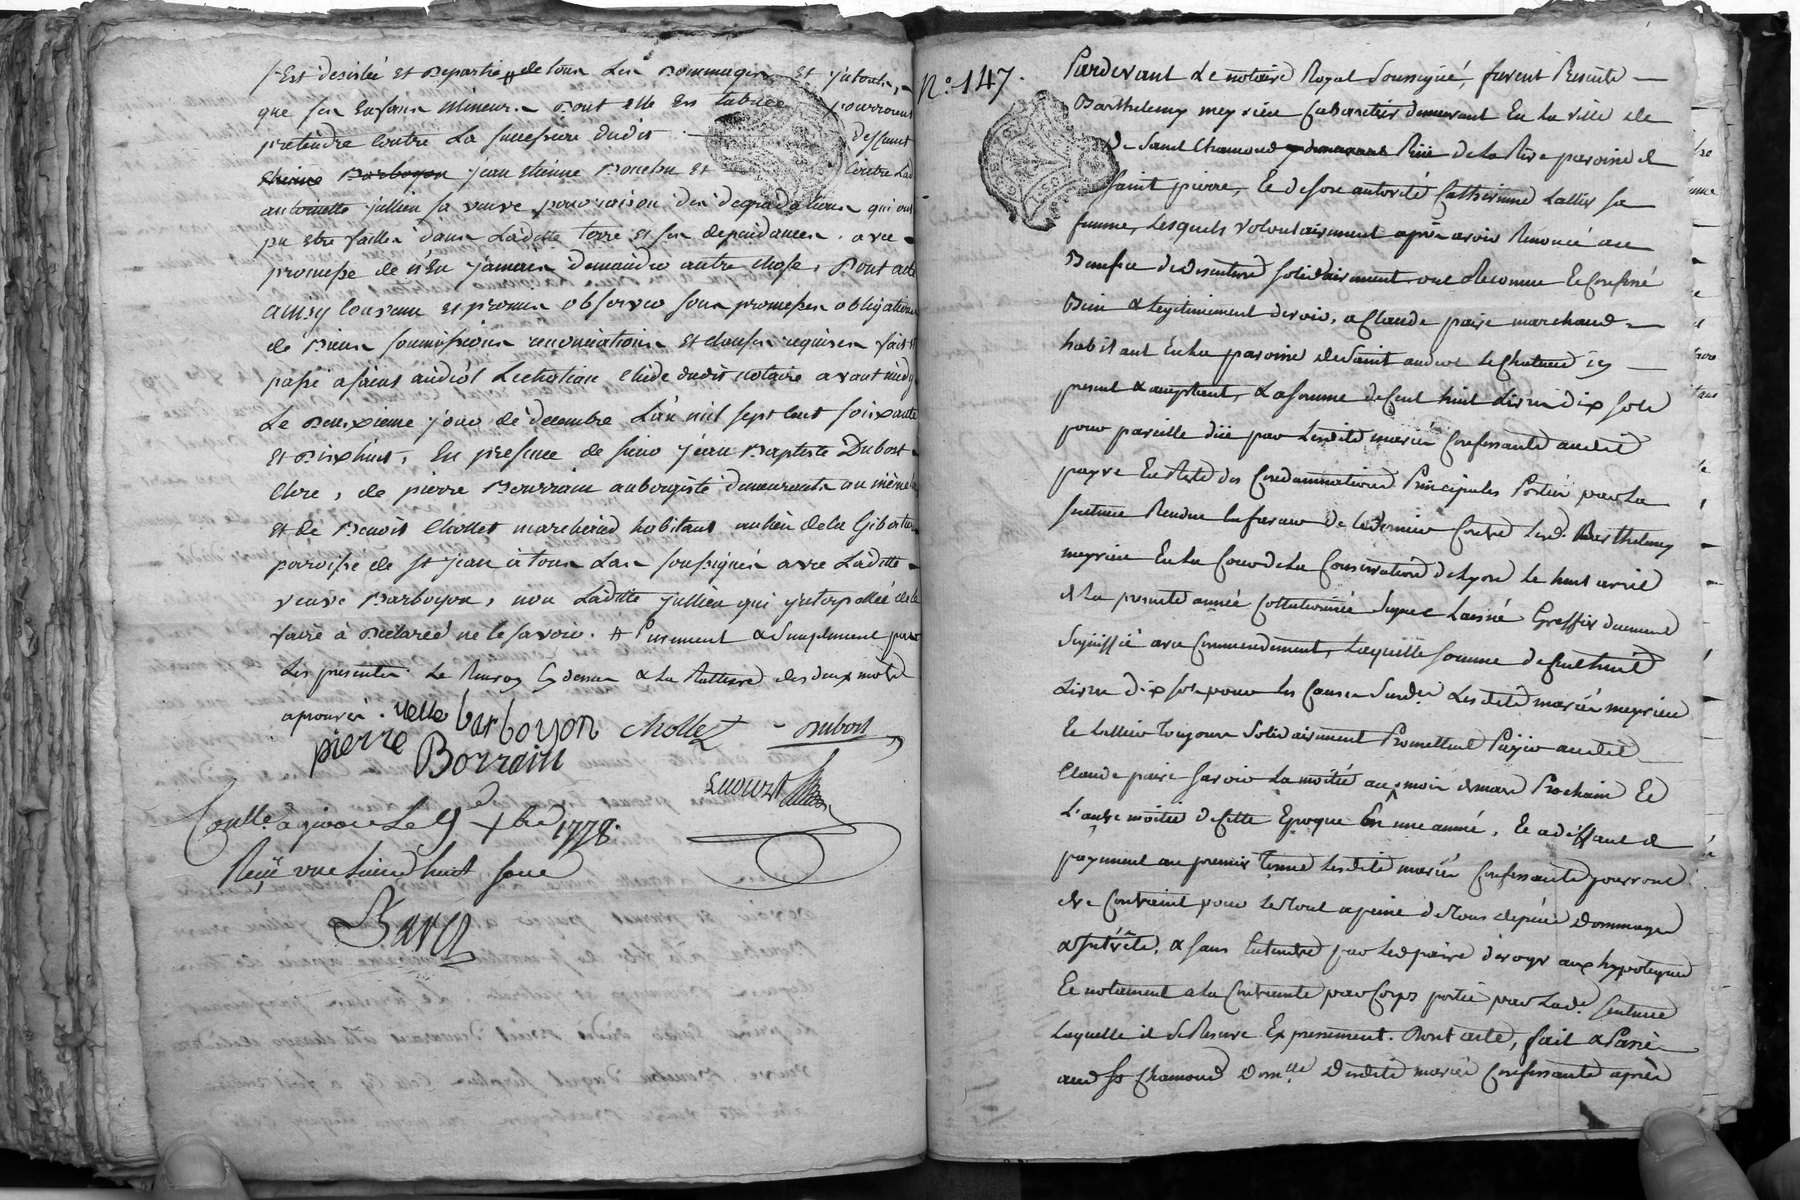 s'Est desistée et Departie # de tous Les Dommages Et jnterets,
que ses Enfans Mineurs Dont elle Est tutrice pourroient
pretendre Contre La succession dudit deffunt
Etienne Barboyon jean Etienne Bonelon et Contre Lad
antoinette jullien sa veuve pour raison des degradations qui ont
pu etre faittes dans Laditte terre et ses dependances. avec
promesse de n'En jamais demander autre chose, Dont acte
ainsy Convenu et promis observer sous promesses obligations
de Biens soumissions renonciations et clauses requises fait et
passé a givors audit Lechotiau Etude dudit notaire avant midy
Le Deuxieme jour de decembre L'an mil sept Cent soixante
et Dixhuit, En presence de sieur jean Baptiste Dubost
Clerc, de pierre Bourrain aubergiste demeurants au même
et de Benoit Chollet marchand habitant au lieu de la Giboture
paroisse de st jean à tous Les soussignés avec Laditte
veuve Barboyon, non Laditte jullien qui jnterpellée de le
faire à Declaréé ne le savoir. # Purement & Simplement par
Les presentes Le Renvoy Cy dessus & La Rature des deux mots
aprouvés. velle barboyon chollet Dubost
pierre Borrain
Contllé à givors Le 9 Xbre 1778.
Reçû une Livre huit sous
N°. 147.
Pardevant Le notaire Royal Soussigné, furent Presents
Barthelemy meyrieu Cabaretier demeurant En La ville de
De Saint Chamond y demeurant Rüe de La Rive paroisse de
Saint pierre, Et de son autorité Catherinne Lallier sa
femme, Lesquels volontairement après avoir Renoncé au
Benefice de discution Solidairement ont Reconnu Et Confessé
Bien & Legitimement devoir, a Claude paire marchand
habitant En La paroisse de Saint andeol Le Chateau icy
present & acceptant, La Somme de Cent huit Livres Dix Sols
pour pareille düe par Lesdits mariés Confessants audit
payre En Reste des Condamnations Principales Portées par La
Sentence Rendue En faveur De Ce dernier Contre Led. Barthelemy
meyrieu En La Cour de La Conservation de Lyon Le huit avril
de La presente année Collationnée Signé Lainné Greffier duement
Signiffié avec Commendement, Laquelle Somme de Cent huit
Livres Dix Sols pour Les Causes Susdes. Lesdits mariés meyrieu
Et Lallier Toujours Solidairement Promettent Païer audit
Claude paire Savoir La moitié au mois de mars Prochain Et
L'autre moitié de Cette Epoque En une année, Et a deffaut de
payement au premier Terme Lesdits mariés Confessants pourront
etre Contraint pour Le Tout a peine de Tous depens Dommages
& jnterêts, & Sans Entendre par Led paire deroger aux hypoteques
Et notament a La Contrainte par Corps portée par Lade. Sentence
Laquelle il se Reserve Expressement. Dont acte, fait & Passé
aud St Chamond Domlle Desdits mariés Confessants après